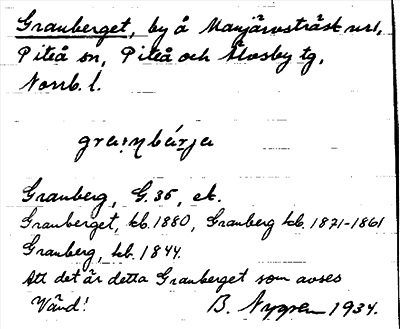 Granberget, by å Manjärvsträsk utsl,
Piteå sn, Piteå och Älvsby tg,
Norrb. l.
Granberg, G.35, ek.
Granberget, kb. 1880, Granberg kb. 1871-1861
Granberg, kb. 1844.
Att det är detta Granberget som avses
Vänd! B. Nygren 1934.